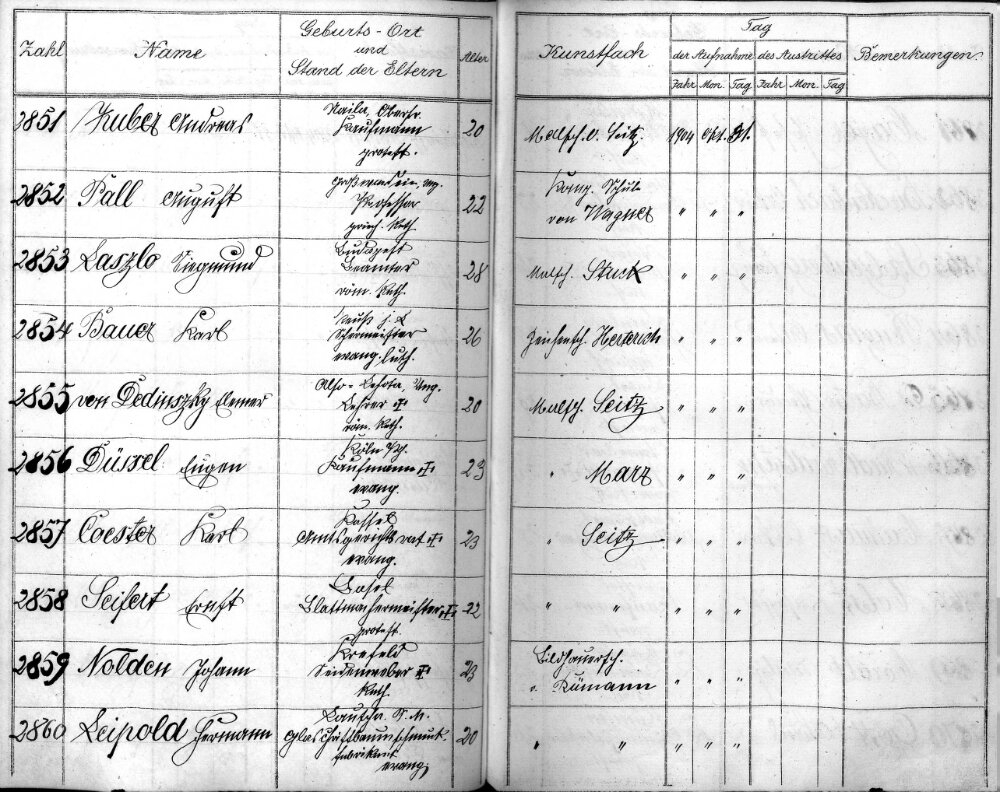 Zahl Name Geburts-Ort und Stand der Eltern Alter Kunstfach Tag der Aufnahme des Austrittes Bemerkungen.
Jahr Mon. Tag Jahr Mon. Tag
Naila, Oberfr.
2851 Huber Andreas Kaufmann 20 Malsch. v. Seitz. 1904 Okt. 31.
protest.
Großwardein, Ung. Komp. Schule
2852 Pall August Professor 22 von Wagner " " "
griech. Kath.
Budapest
2853 Laszlo Siegmund Beamter 28 Malsch. Stuck " " "
röm. Kath.
2854 Bauer Karl 26 Zeichensch. Herterich " " "
evang. luth.
Also-Lehota, Ung.
2855 von Dedinszky Elemer Lehrer † 20 Malsch. Seitz " " "
röm. Kath.
Köln
2856 Düssel Eugen Kaufmann † 23 " Marr " " "
evang.
Kassel
2857 Coester Karl Amtsgerichtsrat † 23 " Seitz " " "
evang.
Basel
2858 Seifert Ernst Blattmachermeister † 22 " " " " "
protest.
Krefeld Bildhauersch.
2859 Nolden Johann Seidenweber † 23 v. Rümann " " "
Kath.
Lauscha S. M.
2860 Leipold Hermann Glaschristbaumschmuck 20 " " " " "
fabrikant
evang.